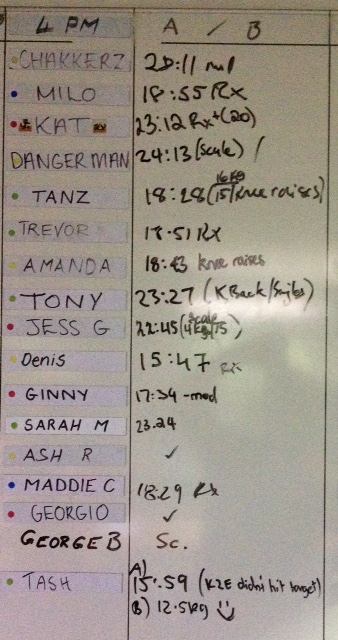 4 PM A / B
CHAKKERZ 20:11 mod
MILO 18:55 Rx
KAT 23:12 Rx+(20)
DANGERMAN 24:13 (scale) /
TANZ 18:28 (15/knee raises)
16KG
TREVOR 17:51 Rx
AMANDA 18:43 knee raises
TONY 23:27 (KBack/Singles)
JESS G 22:45 (
scale
Denis 15:47 Rx
GINNY 17:34 -mod
SARAH M 23.24
ASH R ✓
MADDIE C 18:29 Rx
GEORGIO ✓
GEORGE B Sc.
A)
TASH 15:59 (K2E didn't hit target)
(B) 12.5kg